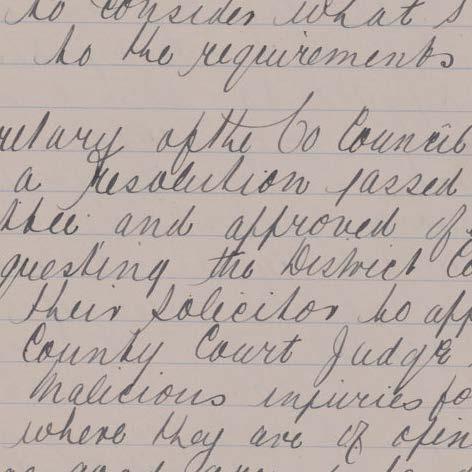 to consider what s
to the requirements
retary of the Co Council
a Resolution passed
ttee and approved of
questing the District Co
their Solicitor to app
County Court Judge
Malicious injuries fo
where they are of opin